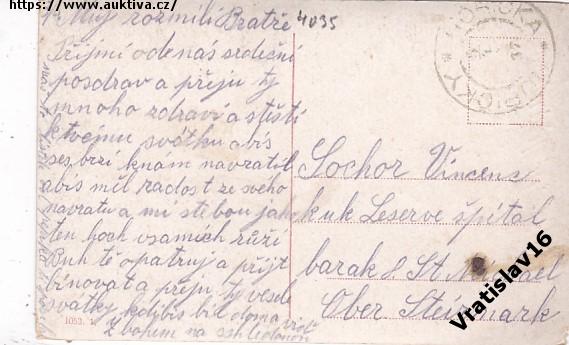 https://www.auktiva.cz/
Můj rozmilí Bratře
4035
Příjmi odenás srdeční
pozdrav a přeju ty
mnoho zdraví a stěstí
ktvejmu svátku abis
ses brzi knam navrátil
abis měl radost ze svého
navratu a mi stebou jako
ten hoch vsamích růží
Buh tě opatruj a přijt
a přeju ty vesele
svátky kdibis bil doma
Z bohem na
1053.
Sochor Vincenc
kuk Leserve špitál
barak 8 St. Michael
Ober Steiermark
Vratislav16